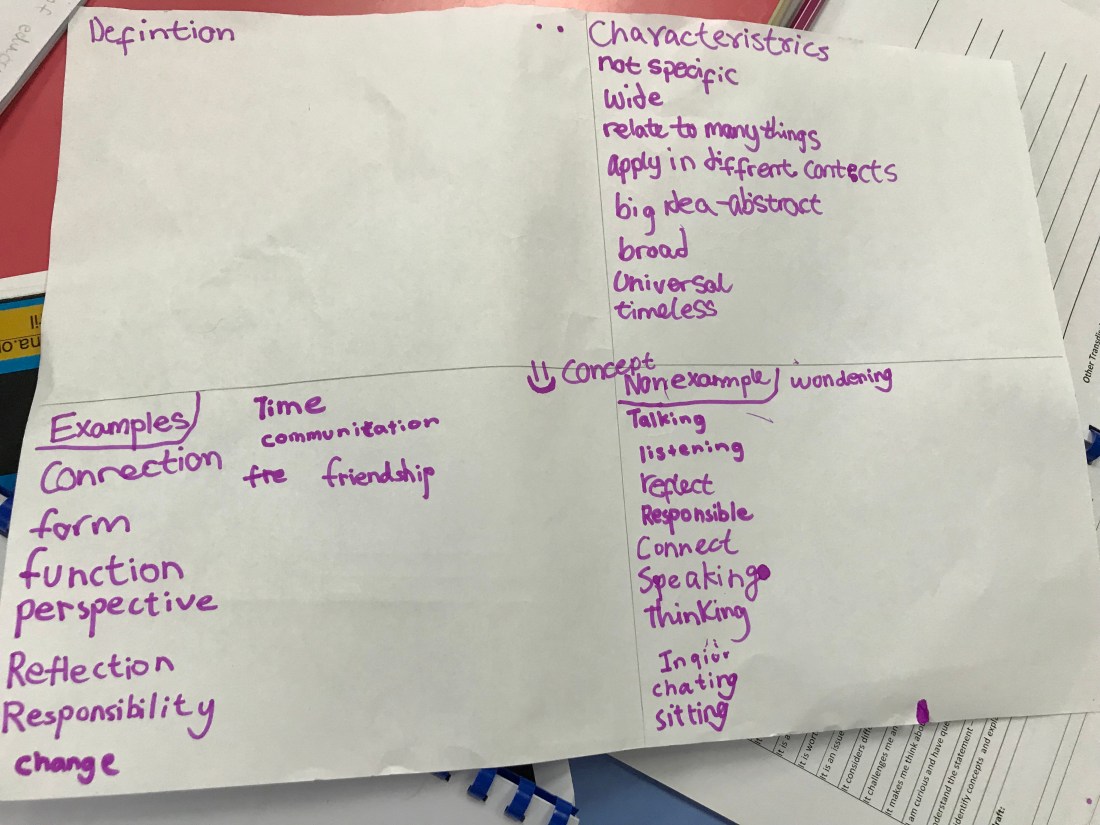 Defintion
Characteristrics
not specific
wide
relate to many things
apply in diffrent contects
big idea-abstract
broad
Universal
timeless
Concept
Examples
Time
communitation
Connection
fre friendship
form
function
perspective
Reflection
Responsibility
change
Nonexample
wondering
Talking
listening
reflect
Responsible
Connect
Speaking
Thinking
Inqiur
chating
sitting
Other Transdi
It is a
It is wor
It is an issue
It considers diff
It challenges me an
It makes me think abo
am curious and have que
understand the statement
identify concepts and expl
raft: